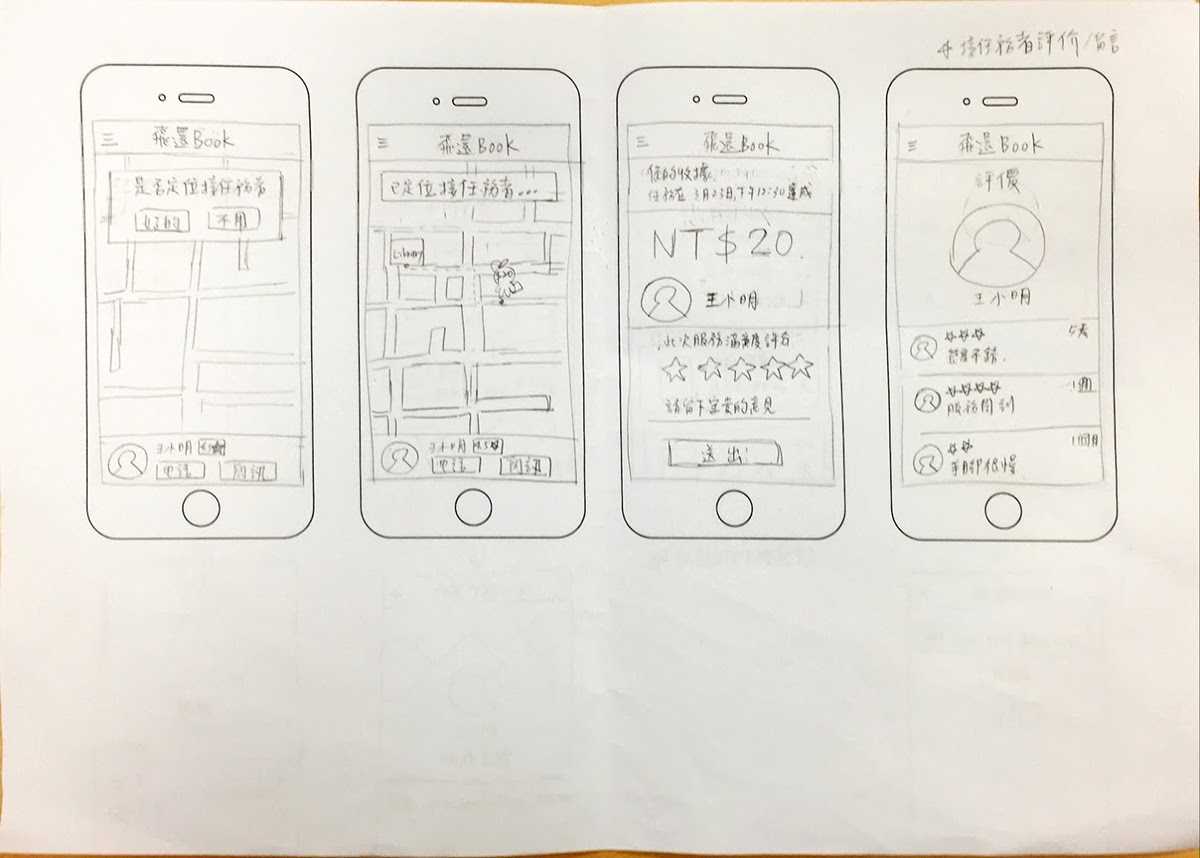 接任務者評价/留言
飛還Book
是否定位接任務者
好的 不用
王小明
電話 簡訊
飛還Book
已定位接任務者...
Library
王小明 4.5
電話 簡訊
飛還Book
您的收據
任務在 3月23日,下午12:30達成
NT$20.
王小明
此次服務滿意度評分
請留下宝貴的意見
送出!
飛還Book
評價
王小明
5天
態度不錯.
1週
服務周到
1個月
手腳很慢.